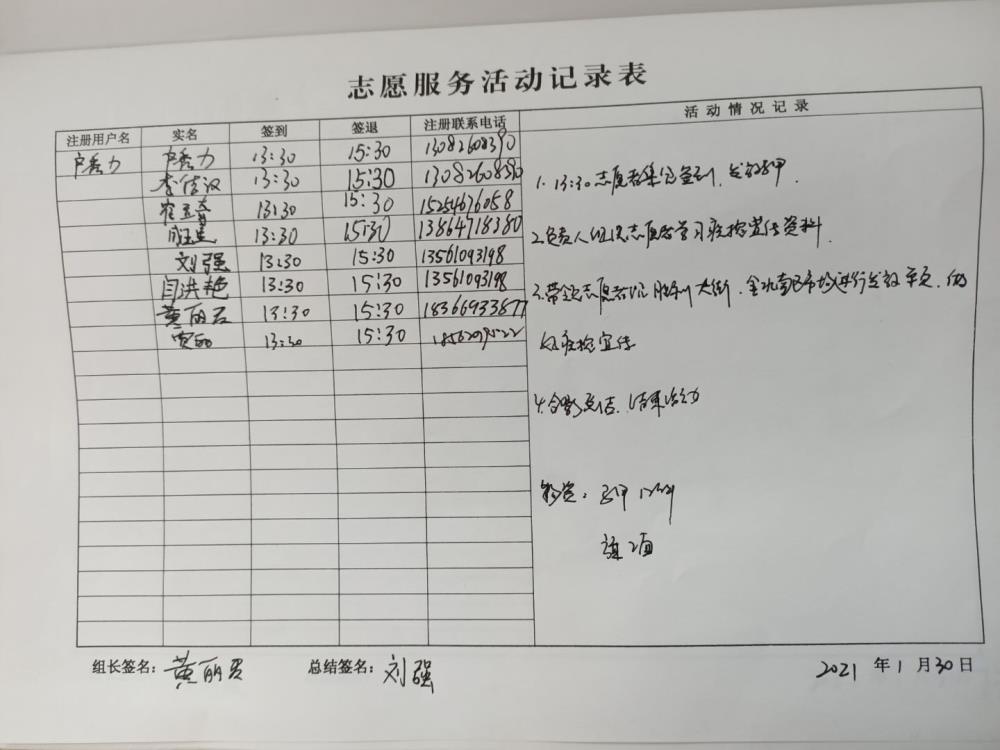 志愿服务活动记录表
注册用户名 实名 签到 签退 注册联系电话 活动情况记录
卢秀力 卢秀力 13:30 15:30 13082608390
李信汉 13:30 15:30 13082608390
13:30 15:30 15254676058
13:30 15:30 13864718380
刘强 13:30 15:30 13561093198
闫洪艳 13:30 15:30 13561093198
黄丽君 13:30 15:30 18366933877
贾丽 13:30 15:30
1. 13:30志愿者集合签到,发放马甲.
2.负责人组织志愿者学习疫控宣传资料.
3.带领志愿者沿胜利大街、进行发放单页,做
好疫控宣传
4.合影总结、结束活动
物资:马甲
旗2面
组长签名:黄丽君 总结签名:刘强 2021年1月30日